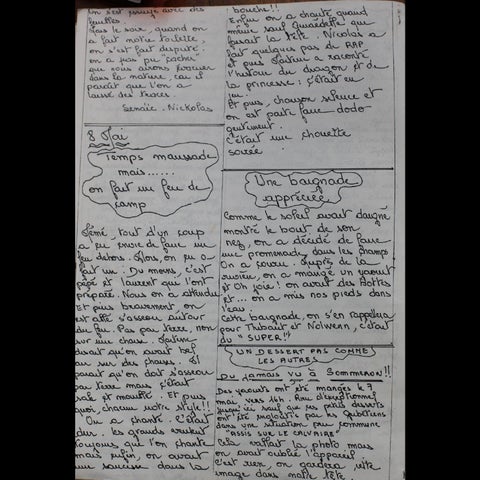 on s'est essuyé avec des
feuilles.
Mais le soir, quand on
a fait notre toilette
on s'est fait disputer:
on a pas pu "cacher"
que nous avions
dans la nature, car il
paraît que l'on a
laissé des traces.
Senaïc. Nickolas
8 Mai
Temps maussade
mais......
on fait un feu de
camp
Mémé, tout d'un coup
a eu envie de faire un
feu dehors. Alors, on en a
fait un: Du moins, c'est
pépé et Laurent qui l'ont
préparé. Nous on a attendu
Et puis bravement, on
est allé s'asseoir autour
du feu. Pas par terre, non
sur une chaise.
disait qu'on avait bel
air sur des chaises. Il
paraît qu'on doit s'asseoir
par terre mais c'était
sale et mouillé. Et puis
quoi chacun notre style!!
On a chanté. C'était
dur. les grands veulent
toujours que l'on chante
mais enfin, on avait
une saucisse dans la
bouche!!
Enfin on a chanté quand
même sauf Gwendella qui
faisait la tête. Nicolas a
fait quelques pas de RAP
Et puis a raconté
l'histoire du dragon et de
la princesse: c'était en
Et puis, chanson silence et
on est parti faire dodo
gentiment.
C'était une chouette
soirée
Une baignade
appréciée
Comme le soleil avait daigné
montré le bout de son
nez, on a décidé de faire
une promenade dans les champs
On a couru. Auprès de la
rivière, on a mangé un yaourt
et Oh joie! on avait des bottes
et... on a mis nos pieds dans
l'eau.
Cette baignade, on s'en rappellera
pour Thibaut et Nolwenn, c'était
du "SUPER!"
UN DESSERT PAS COMME
LES AUTRES
Du jamais vu à Sommeron!!
Des yaourts ont été mangés le 7
mai vers 16h. Rien d'exceptionnel
jusqu'ici sauf que ces petits desserts
ont été engloutis par les
dans une situation peu commune
"ASSIS SUR LE CALVAIRE"
Cela valait la photo mais
on avait oublié l'appareil.
C'est rien, on gardera cette
image dans notre tête.